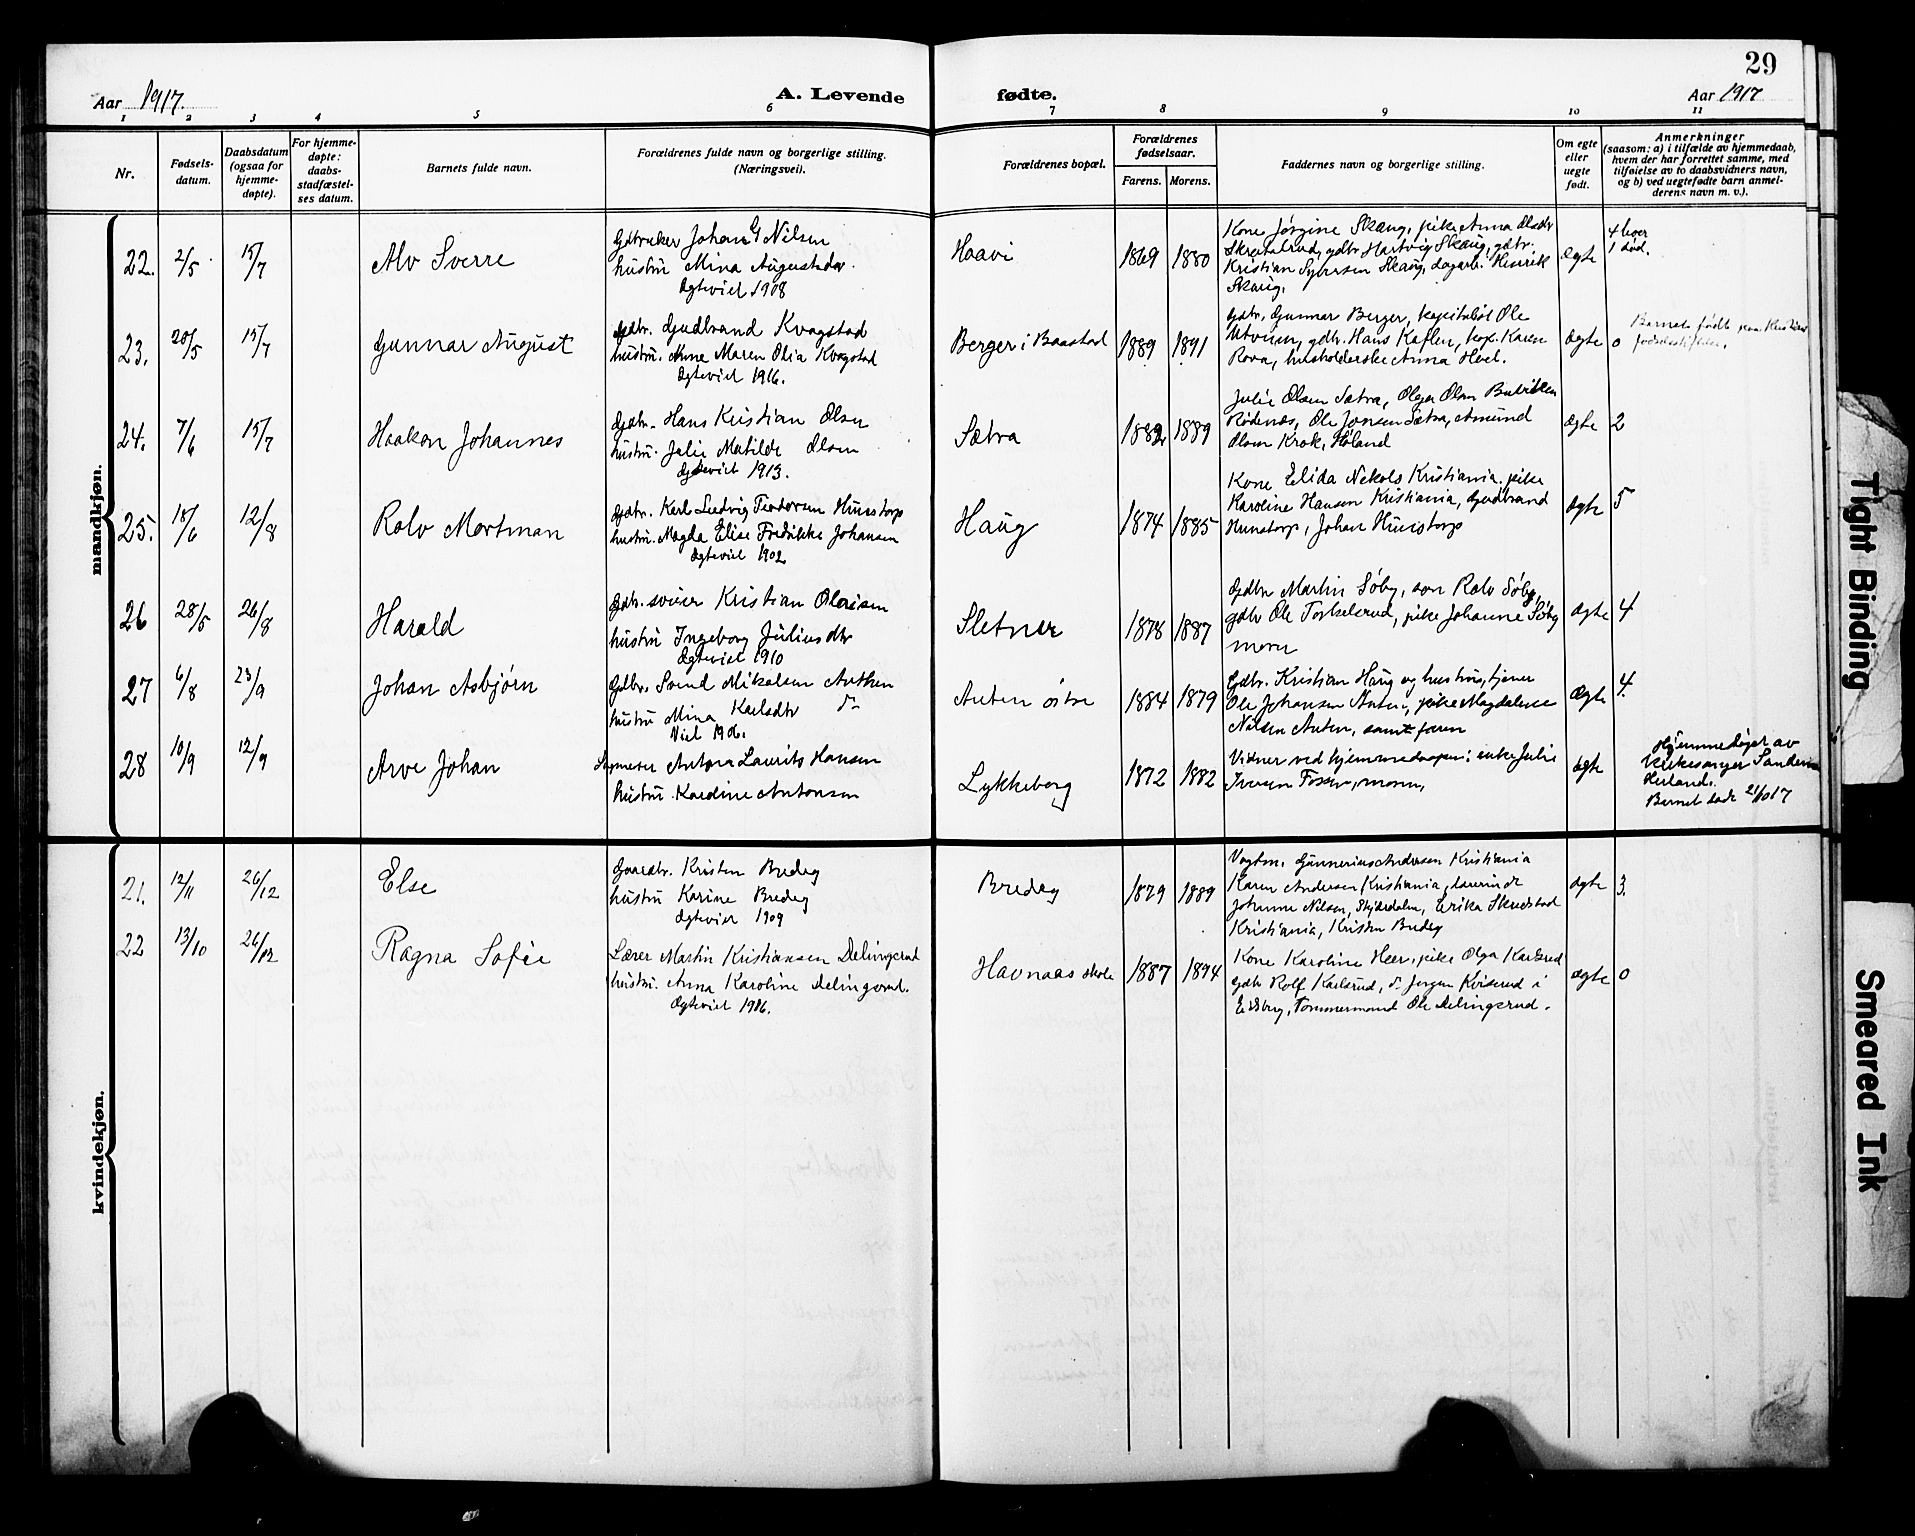 29
Aar 1917.
A. Levende fødte.
Aar 1917
1 2 3 4 5 6 7 8 9 10 11
Nr.
Fødsels-
datum.
Daabsdatum
(ogsaa for
hjemme-
døpte).
For hjemme-
døpte:
daabs-
stadfæstel-
ses datum.
Barnets fulde navn.
Forældrenes fulde navn og borgerlige stilling.
(Næringsvei).
Forældrenes bopæl.
Forældrenes
fødselsaar.
Farens. Morens.
Faddernes navn og borgerlige stilling.
Om egte
eller
uegte
født.
Anmerkninger
(saasom: a) i tilfælde av hjemmedaab,
hvem der har forrettet samme, med
tilføielse av to daabsvidners navn,
og b) ved uegtefødte barn anmel-
derens navn m. v.).
mandkjøn.
22. 2/5 15/7
Alv Sverre
Gdbruker Johan G Nilsen
hustru Mina Augustadtr.
Ægteviet 1908
Haavi
1869 1880
Kone Jørgine Skaug, pike Anna Olsdtr
gdbr. Hartvig Skaug, gdbr.
Kristian Syversen Skaug, dagarb. Henrik
Skaug.
ægte
4 lever
1 død.
23. 20/5 15/7
Gunnar August
Gdbr. Gudbrand Kvagstad
hustru. Anne Maren Olia Kvagstad
Ægteviet 1916.
Berger i Baastad
1889 1891
Gdbr. Gunnar Berger, Ole
gdbr. Hans Kaflen, Karen
husholderske Anna
ægte 0
Barnet født paa Kristiania
fødselsstiftelse.
24. 7/6 15/7
Haakon Johannes
Gdbr. Hans Kristian Olsen
hustru. Julie Matilde Olsen
Ægteviet 1913.
Sætra
1882 1889
Julie Olsen Sætra, Olga Olsen
Rødenæs, Ole Jonsen Sætra, Amund
Olsen Krok, Høland
ægte 2
25. 18/6 12/8
Rolv Mortman
Gdbr. Karl Ludvig Teodorsen Hunstorp
hustru. Magda Elise Fredrikke Johansen
Ægteviet 1902
Haug
1874 1885
Kone Elida Nekols Kristiania, pike
Karoline Hansen Kristiania, Gudbrand
Hunstorp, Johan Hunstorp
ægte 5
26 28/5 26/8
Harald
Gdbr. sviser Kristian Olaisen
hustru Ingeborg Juliusdtr
Ægteviet 1910
Sletner
1878 1887
Gdbr Martin Søby, søn Rolv Søby,
gdbr Ole Torkelsrud, pike Johanne Søby
moren
ægte 4
27 6/8 23/9
Johan Asbjørn
Gdbr. Svend Mikalsen Anthen
hustru Mina Karlsdtr
Viet 1906.
Anten østre
1884 1879
Gdbr. Kristian Haug og hustru, tjener
Ole Johansen Anten, pike Magdalene
Nilsen Anten, samt faren
Ægte 4.
28 10/9 12/9
Arve Johan
Anton Laurits Hansen
hustru Kardine Antonsen
Lykkeborg
1872 1882
Vidner ved hjemmedaapen: enke Julie
Iversen Fosser, moren,
ægte
Hjemmedøpt av
kirkesanger
Barnet døde 21/10 17
kvindekjøn.
21. 12/11 26/12
Else
Gaardbr. Kristen Bredeg
hustru Karine Bredeg
Ægteviet 1909
Bredeg
1879 1889
Vogtm. Gunnerius Andersen Kristiania
Karen Andersen Kristiania, lærerinde
Johanne Nilsen, Skjærdalen, Erika Skredstad
Kristiania, Kristen Bredeg
ægte 3.
22 13/10 26/12
Ragna Sofie
Lærer Martin Kristiansen Delingsrud
hustru. Anna Karoline Delingsrud.
Ægteviet 1916.
Havnaas skole
1887 1894
Kone Karoline Heer, pike Olga Karlsrud
gdbr Rolf Karlsrud, do Jørgen Kviserud i
Eidsberg, Tømmermand Ole Delingsrud.
ægte 0
Tight Binding
Smeared Ink